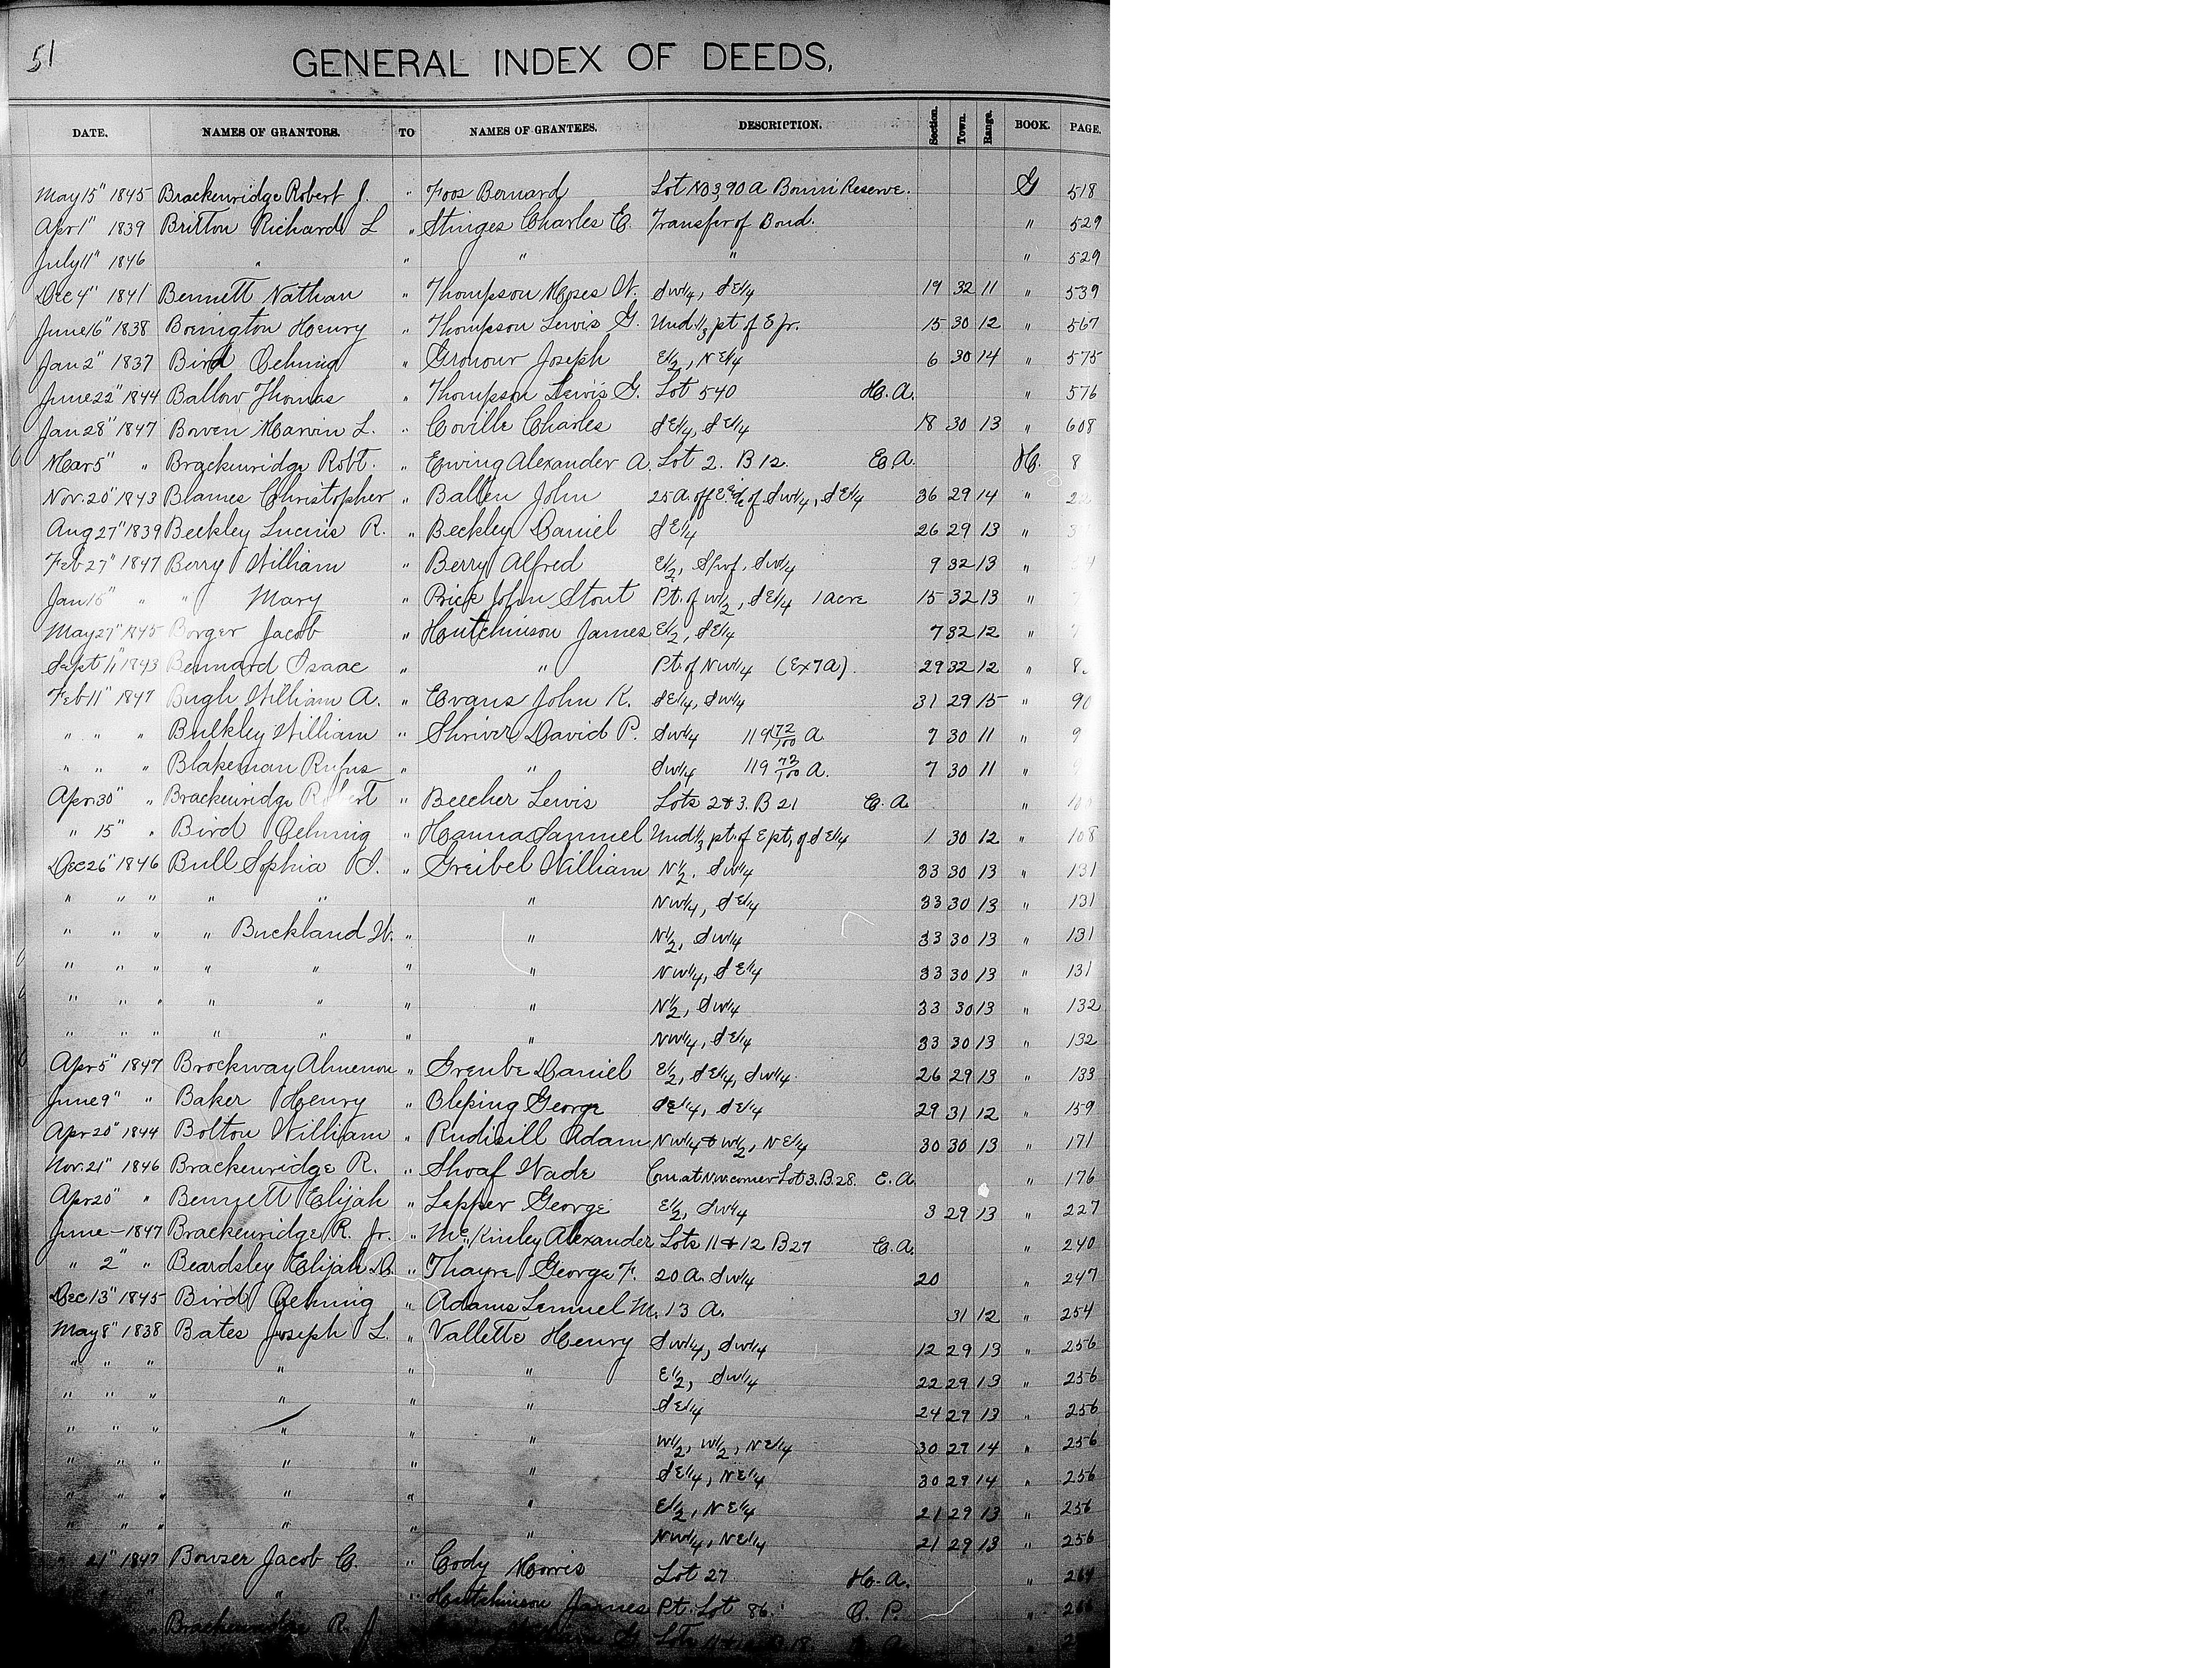 51
GENERAL INDEX OF DEEDS,
DATE. NAMES OF GRANTORS. TO NAMES OF GRANTEES. DESCRIPTION. Section. Town. Range. BOOK. PAGE.
May 15" 1845 Brackenridge Robert J. " Foos Bernard Lot No 3, 90 A Reserve. G 518
Apr 1" 1839 Britton Richard L " Stinges Charles E. Transfer of Bond. " 529
July 11" 1846 " " " " " 529
Dec 4" 1841 Bennett Nathan " Thompson Moses W. Sw1/4, SE1/4 19 32 11 " 539
June 16" 1838 Boington Henry " Thompson Lewis G. Und. 1/3 pt of E fr. 15 30 12 " 567
Jan 2" 1837 Bird Oehmig " Gronour Joseph E1/2, NE1/4 6 30 14 " 575
June 22" 1844 Ballow Thomas " Thompson Lewis G. Lot 540 H. A. " 576
Jan 28" 1847 Bowen Marvin L. " Coville Charles SE1/4, SE1/4 18 30 13 " 608
Mar 5" " Brackenridge Robt. " Ewing Alexander A. Lot 2. B 12. E. A. H. 8
Nov. 20" 1843 Blames Christopher " Ballen John 25 A. off E side of Sw1/4, SE1/4 36 29 14 "
Aug 27" 1839 Beekley Lucius R. " Beckley Daniel SE1/4 26 29 13 "
Feb 27" 1847 Berry William " Berry Alfred E1/2, Sw1/4 9 32 13 "
Jan 16" " " Mary " Price John Stout Pt. of W1/2, SE1/4 1 acre 15 32 13 "
May 27" 1845 Borger Jacob " Hutchinson James E1/2, SE1/4 7 32 12 "
Sept 11" 1843 Bennard Isaac " " Pt. of Nw1/4 (Ex 7 A). 29 32 12 "
Feb 11" 1847 Bugh William A. " Evans John K. SE1/4, Sw1/4 31 29 15 " 90
" " " Bulkley William " Shriver David P. Sw1/4 119 72/100 A. 7 30 11 " 9
" " " Blakeman Rufus " " Sw1/4 119 72/100 A. 7 30 11 "
Apr 30" " Brackenridge Robert " Beecher Lewis Lots 2 & 3. B 21 E. A. "
" 15" " Bird Oehmig " Hanna Samuel Und 1/3 pt. of E pt. of SE1/4 1 30 12 " 108
Dec 26" 1846 Bull Sophia D. " Greibel William N1/2. Sw1/4 33 30 13 " 131
" " " " " " " Nw1/4, SE1/4 33 30 13 " 131
" " " " Buckland W. " " N1/2, Sw1/4 33 30 13 " 131
" " " " " " " Nw1/4, SE1/4 33 30 13 " 131
" " " " " " " N1/2, Sw1/4 33 30 13 " 132
" " " " " " " Nw1/4, SE1/4 33 30 13 " 132
Apr 5" 1847 Brockway Almenon " Greube Daniel E1/2, SE1/4, Sw1/4. 26 29 13 " 133
June 9" " Baker Henry " Bleping George SE1/4, SE1/4 29 31 12 " 159
Apr 20" 1844 Bolton William " Rudisill Adam Nw1/4 & W1/2, NE1/4 30 30 13 " 171
Nov. 21" 1846 Brackenridge R. " Shoaf Wade Com. at Nw corner Lot 3. B. 28. E. A. " 176
Apr 20" " Bennett Elijah " Lepper George E1/2, Sw1/4 3 29 13 " 227
June — 1847 Brackenridge R. Jr. " McKinley Alexander Lots 11 & 12 B 27 E. A. " 240
" 2" " Beardsley Elijah D. " Thayre George F. 20 A. Sw1/4 20 " 247
Dec 13" 1845 Bird Oehmig " Adams Lemuel M. 13 A. 31 12 " 254
May 8" 1838 Bates Joseph L. " Vallette Henry Sw1/4, Sw1/4 12 29 13 " 256
" " " " " " E1/2, Sw1/4 22 29 13 " 256
" " " " " " SE1/4 24 29 13 " 256
" " " " " " W1/2, W1/2, NE1/4 30 29 14 " 256
" " " " " " SE1/4, NE1/4 30 29 14 " 256
" " " " " " E1/2, NE1/4 21 29 13 " 256
" " " " " " Nw1/4, NE1/4 21 29 13 " 256
21" 1847 Bowser Jacob C. " Cody Morris Lot 27 H. A. " 264
" " " Hutchinson James Pt. Lot 86. O. P. "
Brackenridge R. J.